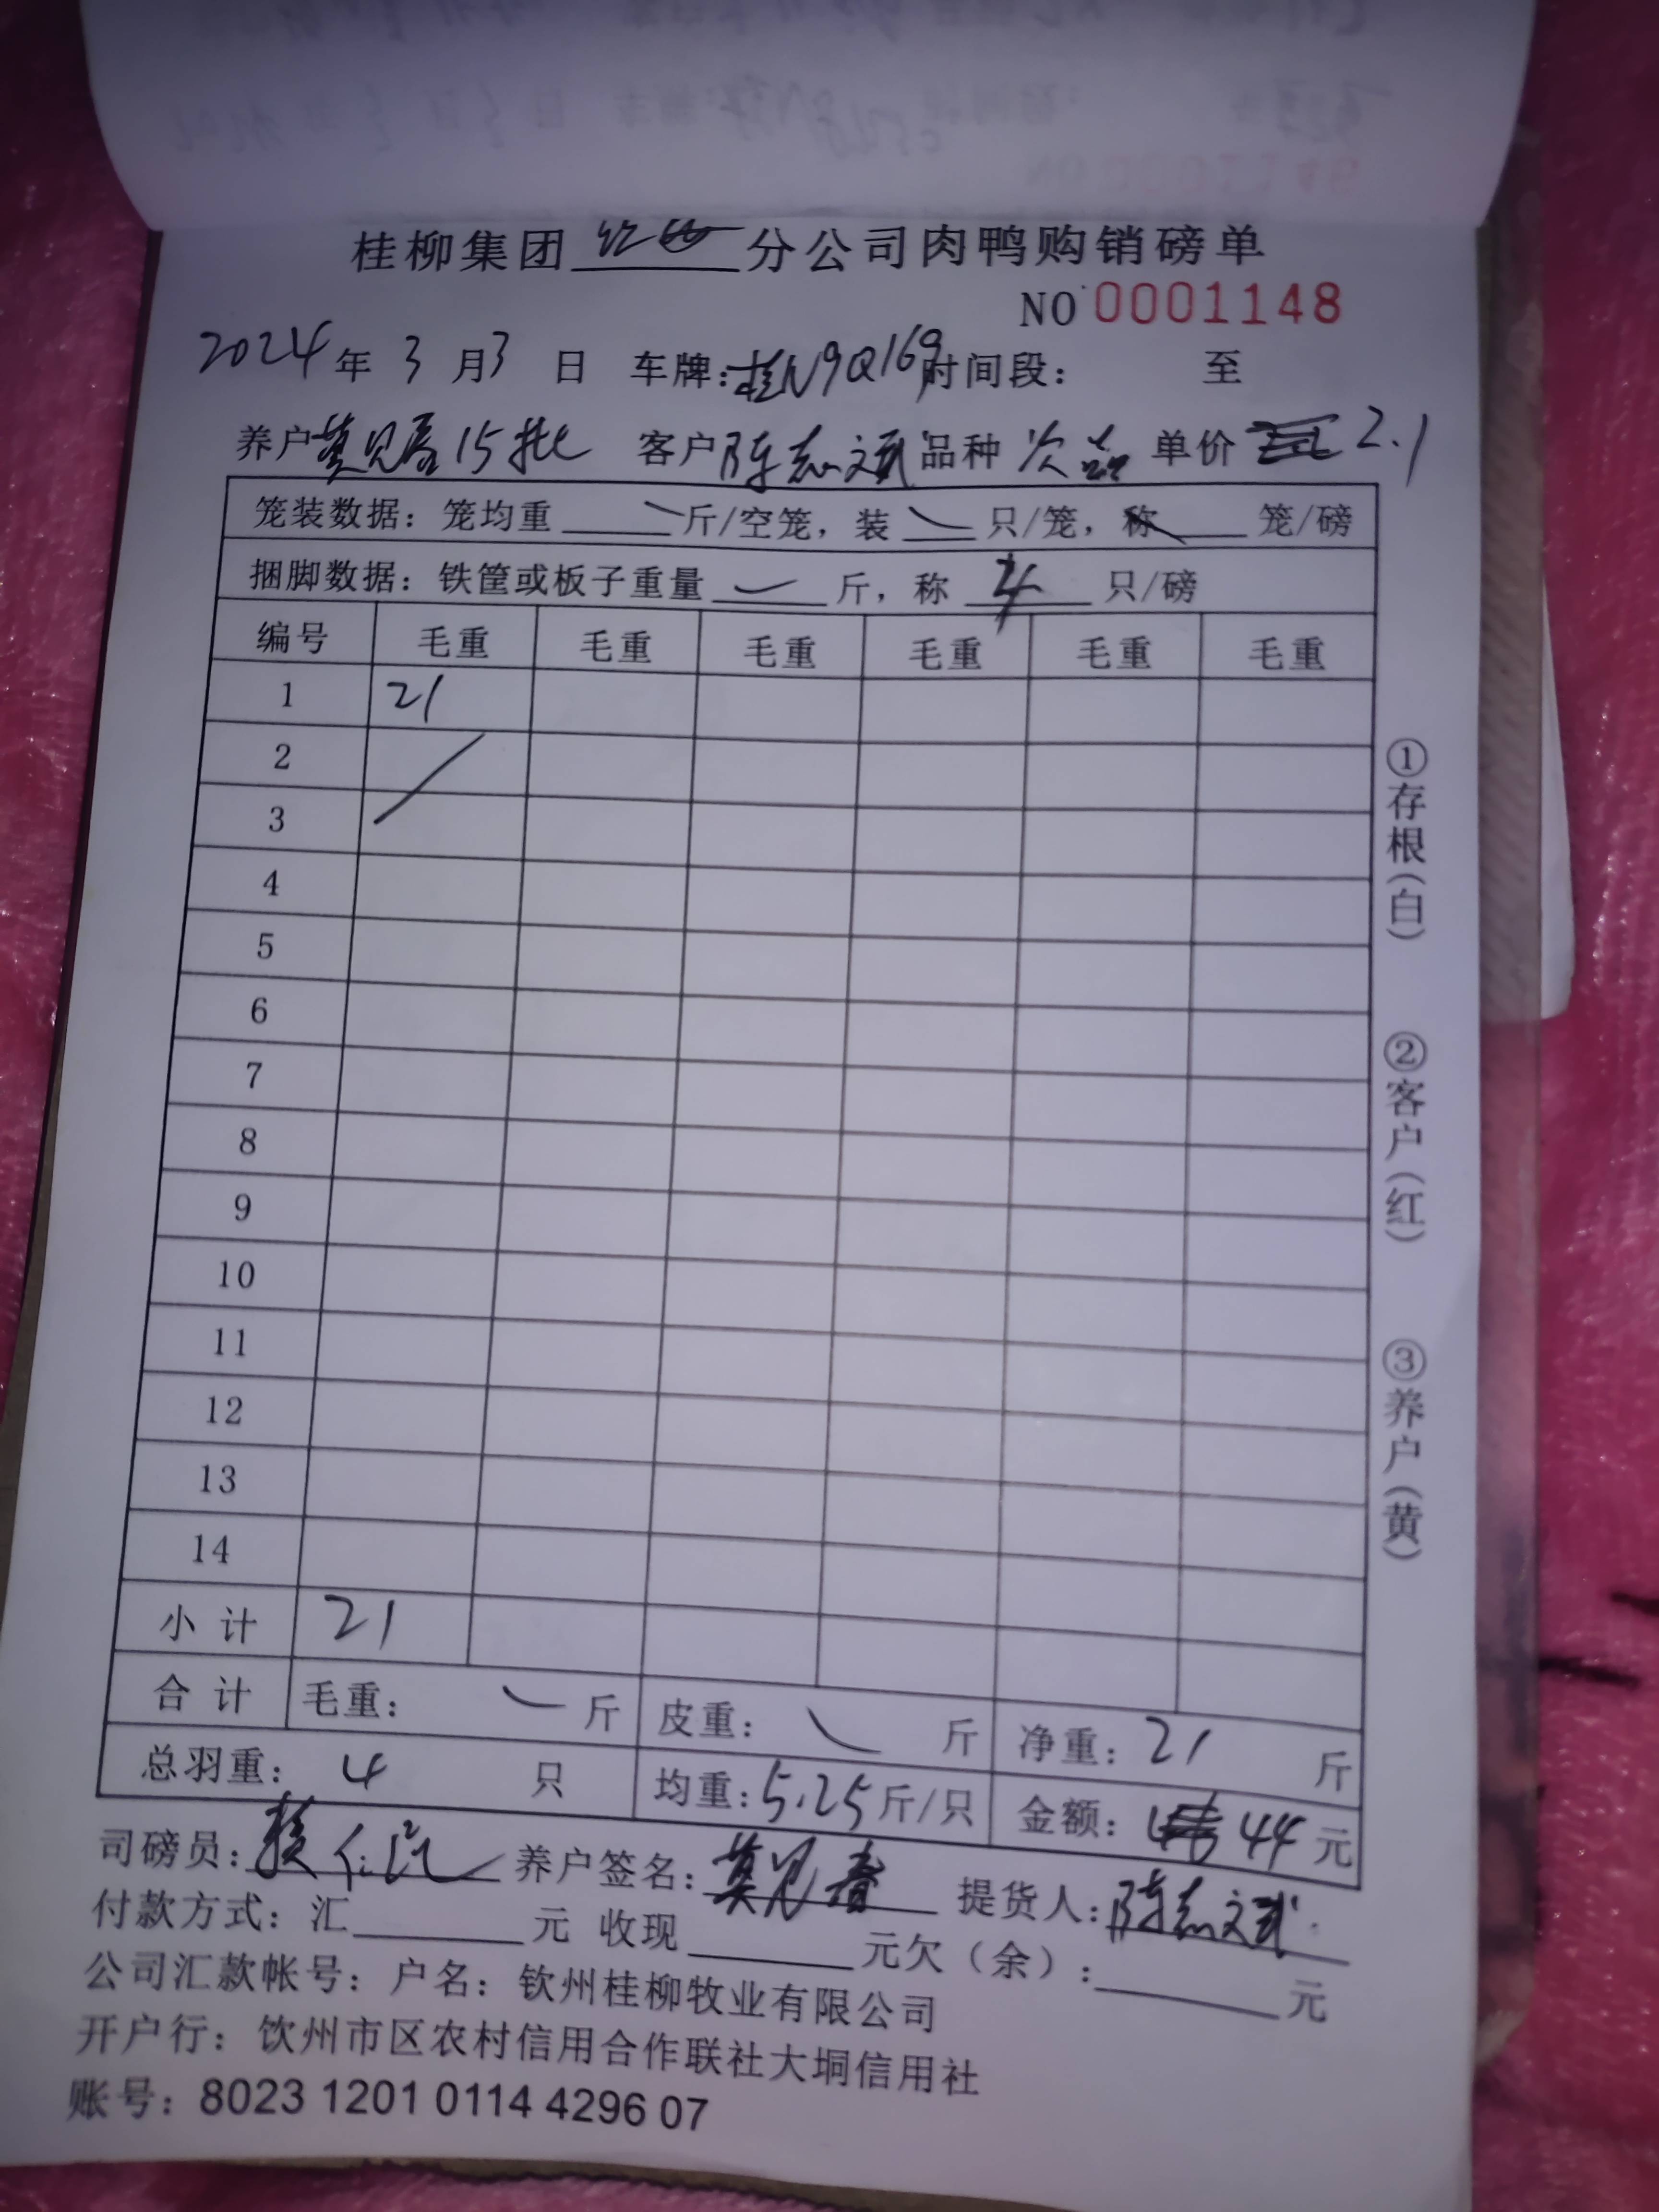 桂柳集团 分公司肉鸭购销磅单
NO 0001148
2024 年 3 月 3 日 车牌:桂N9Q169 时间段: 至
养户 莫见春 15批 客户 陈志文武 品种 次品 单价 2.1
笼装数据: 笼均重 斤/空笼, 装 只/笼, 称 笼/磅
捆脚数据: 铁筐或板子重量 斤, 称 4 只/磅
编号 毛重 毛重 毛重 毛重 毛重 毛重
1 21
2
3
4
5
6
7
8
9
10
11
12
13
14
小计 21
合计 毛重: 斤 皮重: 斤 净重: 21 斤
总羽重: 4 只 均重: 5.25 斤/只 金额: 44 元
司磅员: 养户签名: 莫见春 提货人: 陈志
付款方式: 汇 元 收现 元欠(余): 元
公司汇款帐号: 户名: 钦州桂柳牧业有限公司
开户行: 饮州市区农村信用合作联社大垌信用社
账号: 8023 1201 0114 4296 07
①存根(白)
②客户(红)
③养户(黄)